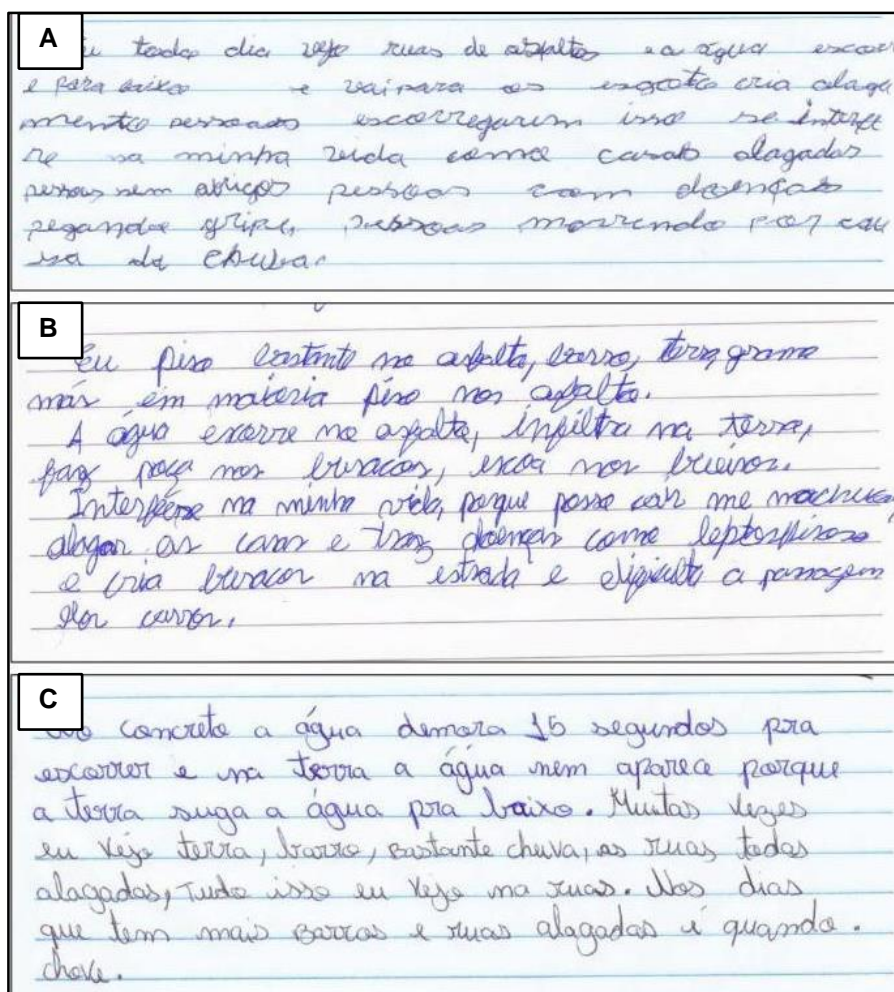 A
eu todo dia vejo ruas de asfaltos e a água escorr
e para baixo e vai para os esgoto cria alaga
mento pessoas escorregarem isso se interfe
re na minha vida como casas alagadas
pessoas sem abrigos pessoas com doenças
pegando gripe, pessoas morrendo por cau
sa da chuva.
B
Eu piso bastante no asfalto, barro, terra, grama
más em materia piso nos asfalto.
A água escorre no asfalto, infiltra na terra,
faz poça nos buracos, escoa nos bueiros.
Interfere na minha vida, porque posso cair me machucar,
alagar as casas e traz doenças como leptospirose
e cria buracos na estrada e dificulta a passagem
dos carros.
C
No concreto a água demora 15 segundos pra
escorrer e na terra a água nem aparece porque
a terra suga a água pra baixo. Muitas vezes
eu vejo terra, barro, Bastante chuva, as ruas todas
alagadas, Tudo isso eu vejo na ruas. Nos dias
que tem mais Barros e ruas alagadas é quando.
chove.